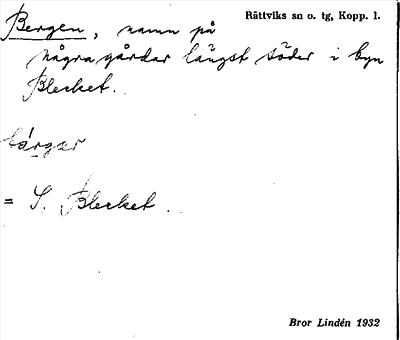 Rättviks sn o. tg, Kopp. l.
Bergen, namn på
några gårdar längst söder i byn
Blecket.
bárgar
= S. Blecket.
Bror Lindén 1932